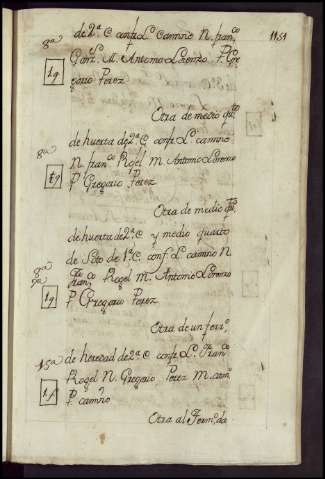 1151
8ª de 2ª C confr Lº Camino N. franco
Gonz. M. Antonio Lorenzo P. Gre
gorio Perez
Otra de medio qto
8ª de huerta de 2ª C confr Lº camino
N francº Rogel M Antonio Lorenzo
P. Gregorio Perez
Otra de medio qto
de huerta de 2ª C y medio quarto
8ª de Soto de 1ª C. conf Lº camino N
9ª franco Rogel M. Antonio Lorenzo
1q P Gregorio Perez
Otra de un ferrº
15ª de heredad de 2ª C confr Lº Franco
Rogel N. Gregorio Perez M. camº
1f P camino
Otra al Termº de